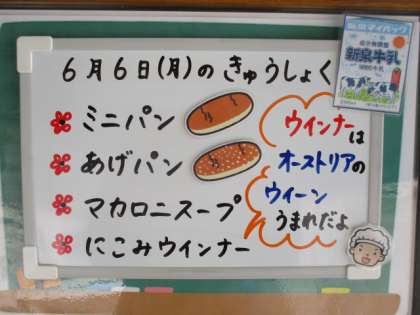 6月6日(月)のきゅうしょく
ミニパン
あげパン
マカロニスープ
にこみウインナー
ウインナーは
オーストリアの
ウィーン
うまれだよ
新泉牛乳